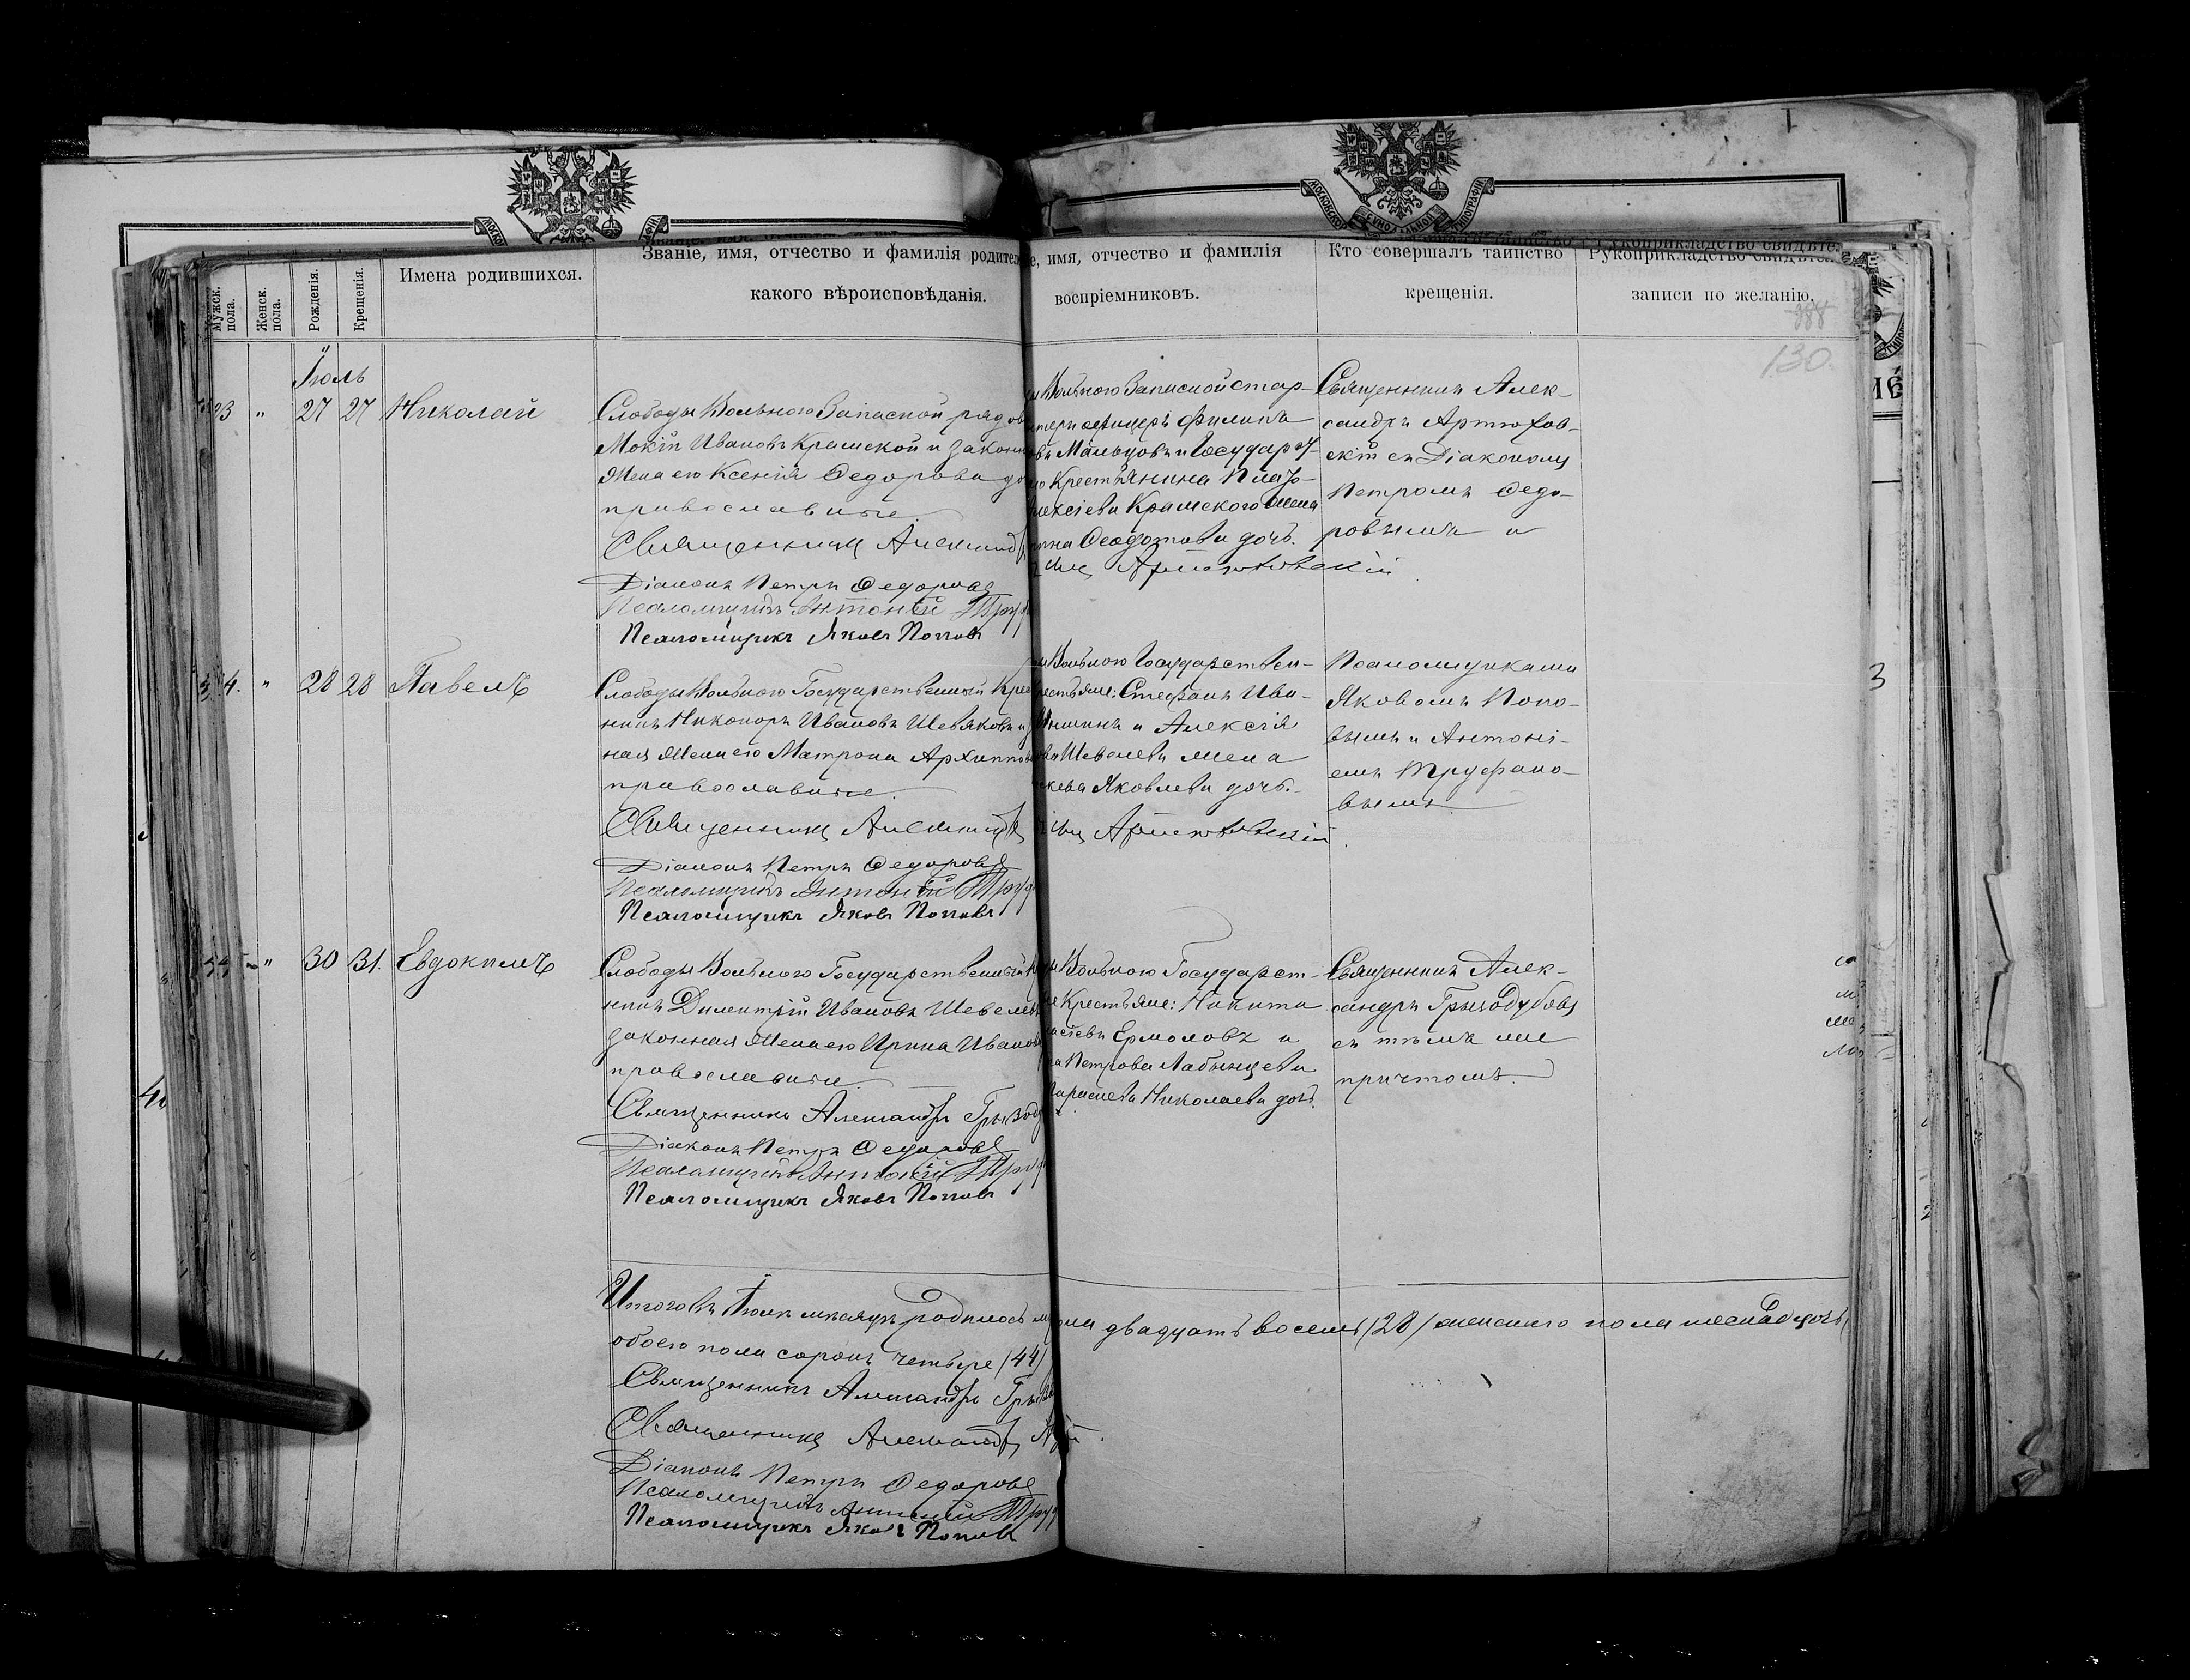 МОСКОВСКОЙ СѴНОДАЛЬНОЙ ТИПОГРАФІИ
Мужск. пола.
Женск. пола.
Рожденія.
Крещенія.
Имена родившихся.
Званіе, имя, отчество и фамилія родител
какого вѣроисповѣданія.
е, имя, отчество и фамилія
воспріемниковъ.
Кто совершалъ таинство
крещенія.
Рукоприкладство свидѣте
записи по желанію.
130.
Іюль
23 " 27 27 Николай
Слободы Вольного Запасной рядов
Мокій Ивановъ Крамской и законн
жена его Ксенія Ѳедорова до
православные.
Священникъ Александръ
Діаконъ Петръ Ѳедоровъ
Псаломщикъ Антоній Труф
Псаломщикъ Яковъ Поповъ
ы Вольного Запасной стар-
унтеръ офицеръ Филиппъ
овъ Мальцовъ и Государст-
го Крестьянина Плато-
Алексіева Крамского жена
Ѳеодотова дочь.
Артюховскій
Священникъ Алек-
сандръ Артюхов-
скій съ Діакономъ
Петромъ Ѳедо-
ровымъ и
4. " 28 28 Павелъ
Слободы Вольного Государственный Крес
нинъ Никоноръ Ивановъ Шевяковъ и з
ная жена его Матрона Архиппова
православные.
Священникъ Александръ
Діаконъ Петръ Ѳедоровъ
Псаломщикъ Антоній Труф
Псаломщикъ Яковъ Поповъ
ы Вольного Государствен-
рестьяне: Стефанъ Ива-
и Алексія
Шевелева жена
Яковлева дочь.
Артюховскій
Псаломщиками
Яковомъ Попо-
вымъ и Антоні-
емъ Труфано-
вымъ
" 30 31. Евдокимъ
Слободы Вольного Государственный К
нинъ Димитрій Ивановъ Шевелевъ
законная жена его Ирина Иванова
православные.
Священникъ Александръ Грызоду
Діаконъ Петръ Ѳедоровъ
Псаломщикъ Антоній Труф
Псаломщикъ Яковъ Поповъ
ы Вольного Государст-
е Крестьяне: Никита
Ермоловъ и
Петрова Лабынцева
Параскева Николаева дочь.
Священникъ Алек-
сандръ Грызодубовъ
съ тѣмъ же
причтомъ.
Итого въ Іюлѣ мѣсяцѣ родилось м пола двадцать восемь (28) женскаго пола шеснадцать (
обоего пола сорокъ четыре (44)
Священникъ Александръ Грызо
Священникъ Александръ Арт
Діаконъ Петръ Ѳедоровъ
Псаломщикъ Антоній Труф
Псаломщикъ Яковъ Поповъ
3